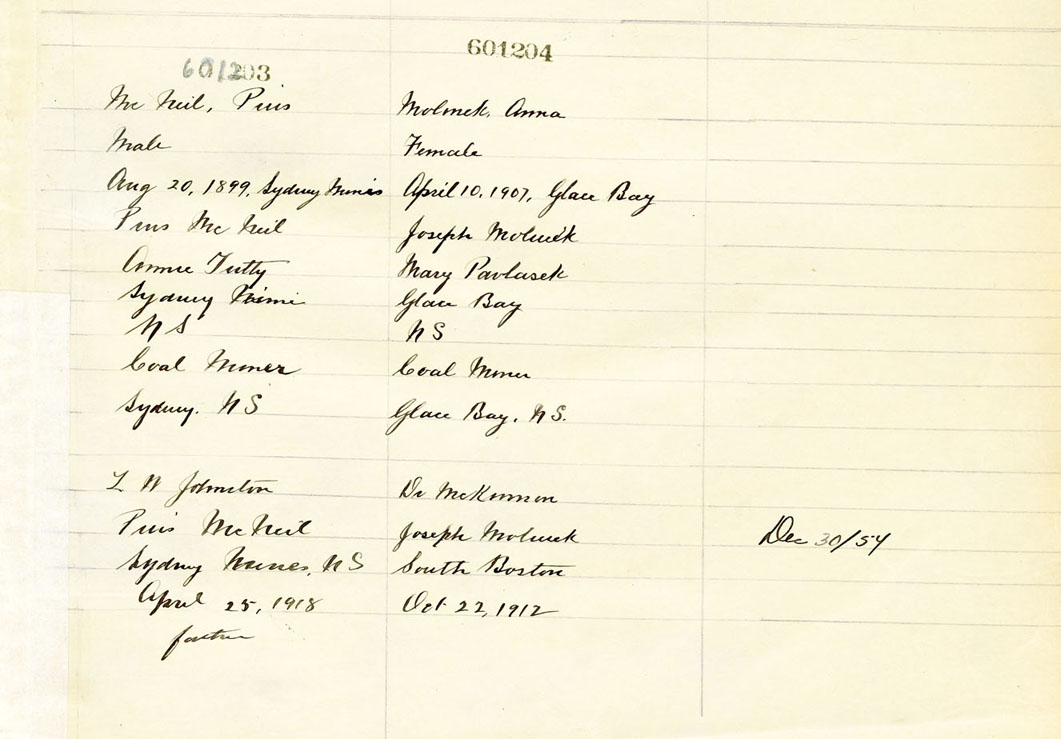 601204
601203
Mc Neil, Pius
Molnek, Anna
Male
Female
Aug 20, 1899, Sydney Mines
April 10, 1907, Glace Bay
Pius Mc Neil
Joseph
Annie Tutty
Mary Pavlasek
Sydney
Glace Bay
NS
NS
Coal Miner
Coal Miner
Sydney. NS
Glace Bay, NS.
L W Johnston
Dr McKinnon
Pius McNeil
Joseph
Dec 30/54
Sydney Mines, NS
South Boston
April 25, 1918
Oct 22, 1912
father